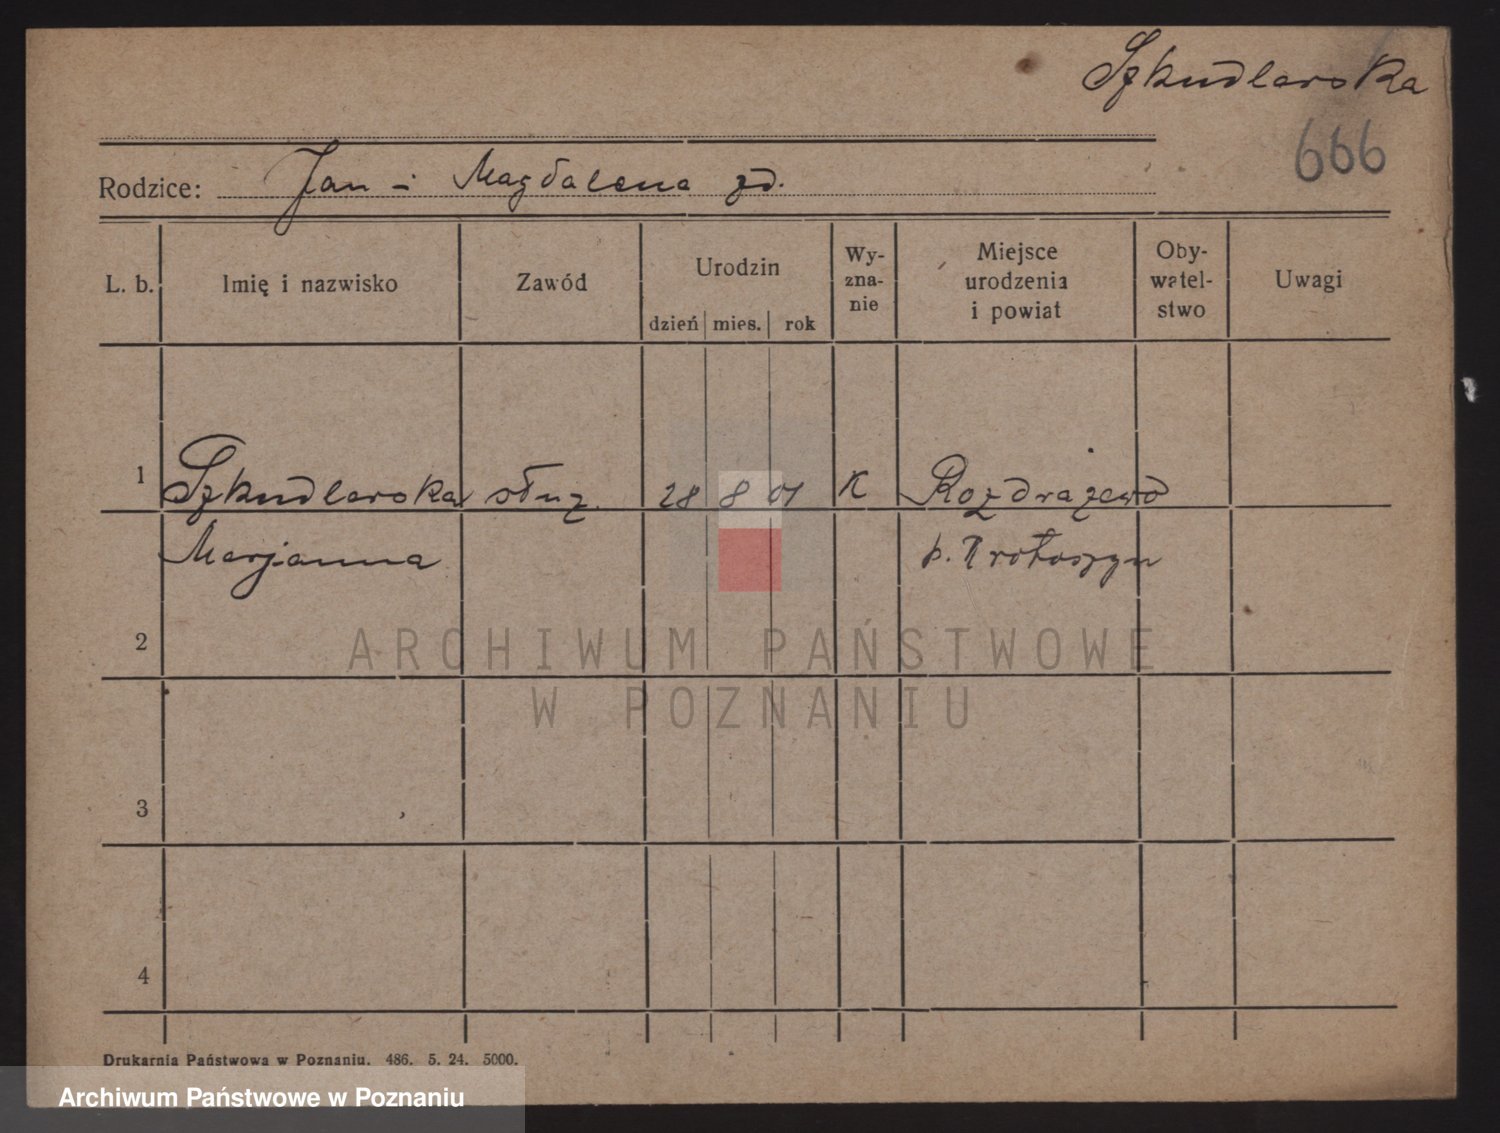 Szkudlarska
666
Rodzice: Jan i Magdalena zd.
L. b. Imię i nazwisko Zawód Urodzin dzień mies. rok Wy-zna-nie Miejsce urodzenia i powiat Oby-watel-stwo Uwagi
1 Szkudlarska słuz. 28 8 01 K Rozdrażewo
Marjanna p. Krotoszyn
2
ARCHIWUM PAŃSTWOWE
W POZNANIU
3
4
Drukarnia Państwowa w Poznaniu. 486. 5. 24. 5000.
Archiwum Państwowe w Poznaniu